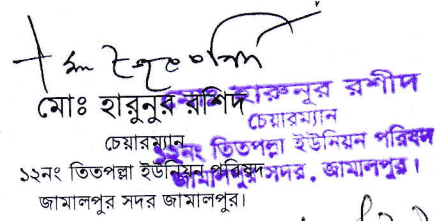 মোঃ হারুনুর রশিদ
চেয়ারম্যান
১২নং তিতপল্লা ইউনিয়ন পরিষদ
জামালপুর সদর জামালপুর।
হারুনূর রশীদ
চেয়ারম্যান
১২নং তিতপল্লা ইউনিয়ন পরিষদ
জামালপুর সদর, জামালপুর।